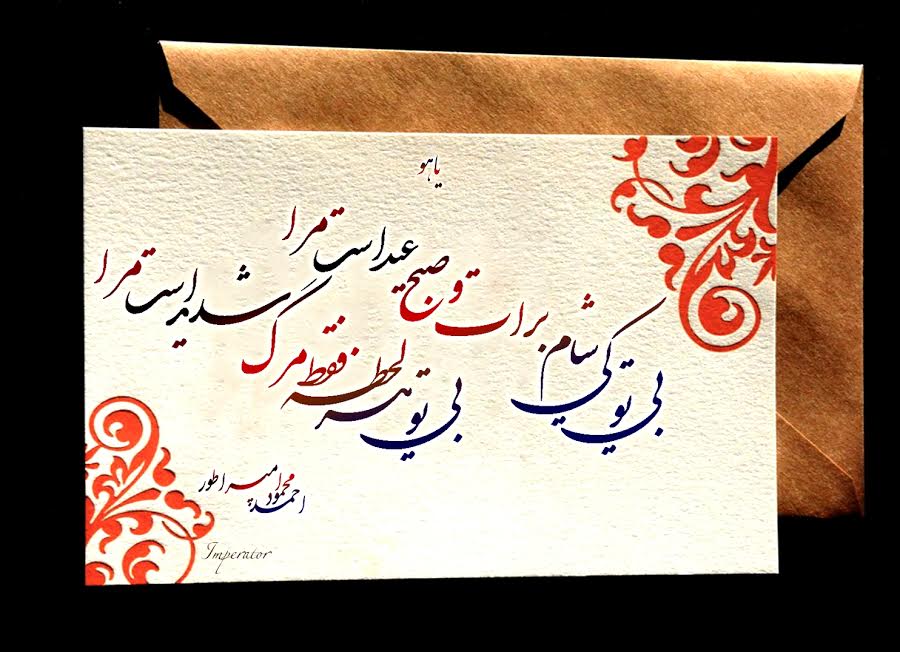 یاهو
بی تو کی شام برات و صبح عید است مرا
بی تو هر لحظه فقط مرگ شدید است مرا
احمد محمود امپراطور
Imperator